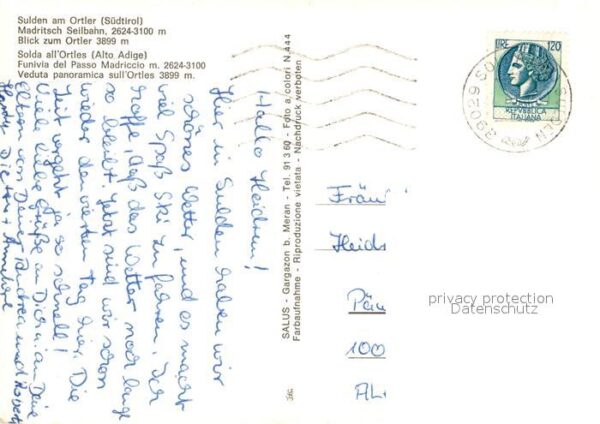 Sulden am Ortler (Südtirol)
Madritsch Seilbahn, 2624-3100 m
Blick zum Ortler 3899 m
Solda all'Ortles (Alto Adige)
Funivia del Passo Madriccio m. 2624-3100
Veduta panoramica sull'Ortles 3899 m.
Hallo Heidrun!
Hier in Sulden haben wir
schönes Wetter, und es macht
viel Spaß Ski zu fahren. Ich
hoffe, daß das Wetter noch lange
so bleibt. Jetzt sind wir schon
wieder den vierten Tag hier. Die
Zeit vergeht ja so schnell!
Viele liebe Grüße an Dich u. an Deine
Eltern von Deiner Andrea und
SALUS - Gargazon b. Meran - Tel. 91360 - Foto a colori N.444
Farbaufnahme - Riproduzione vietata - Nachdruck verboten
LIRE 120
REPVBBLICA
ITALIANA
39029 SO
SULDEN
Fräu
Heid
100
privacy protection
Datenschutz